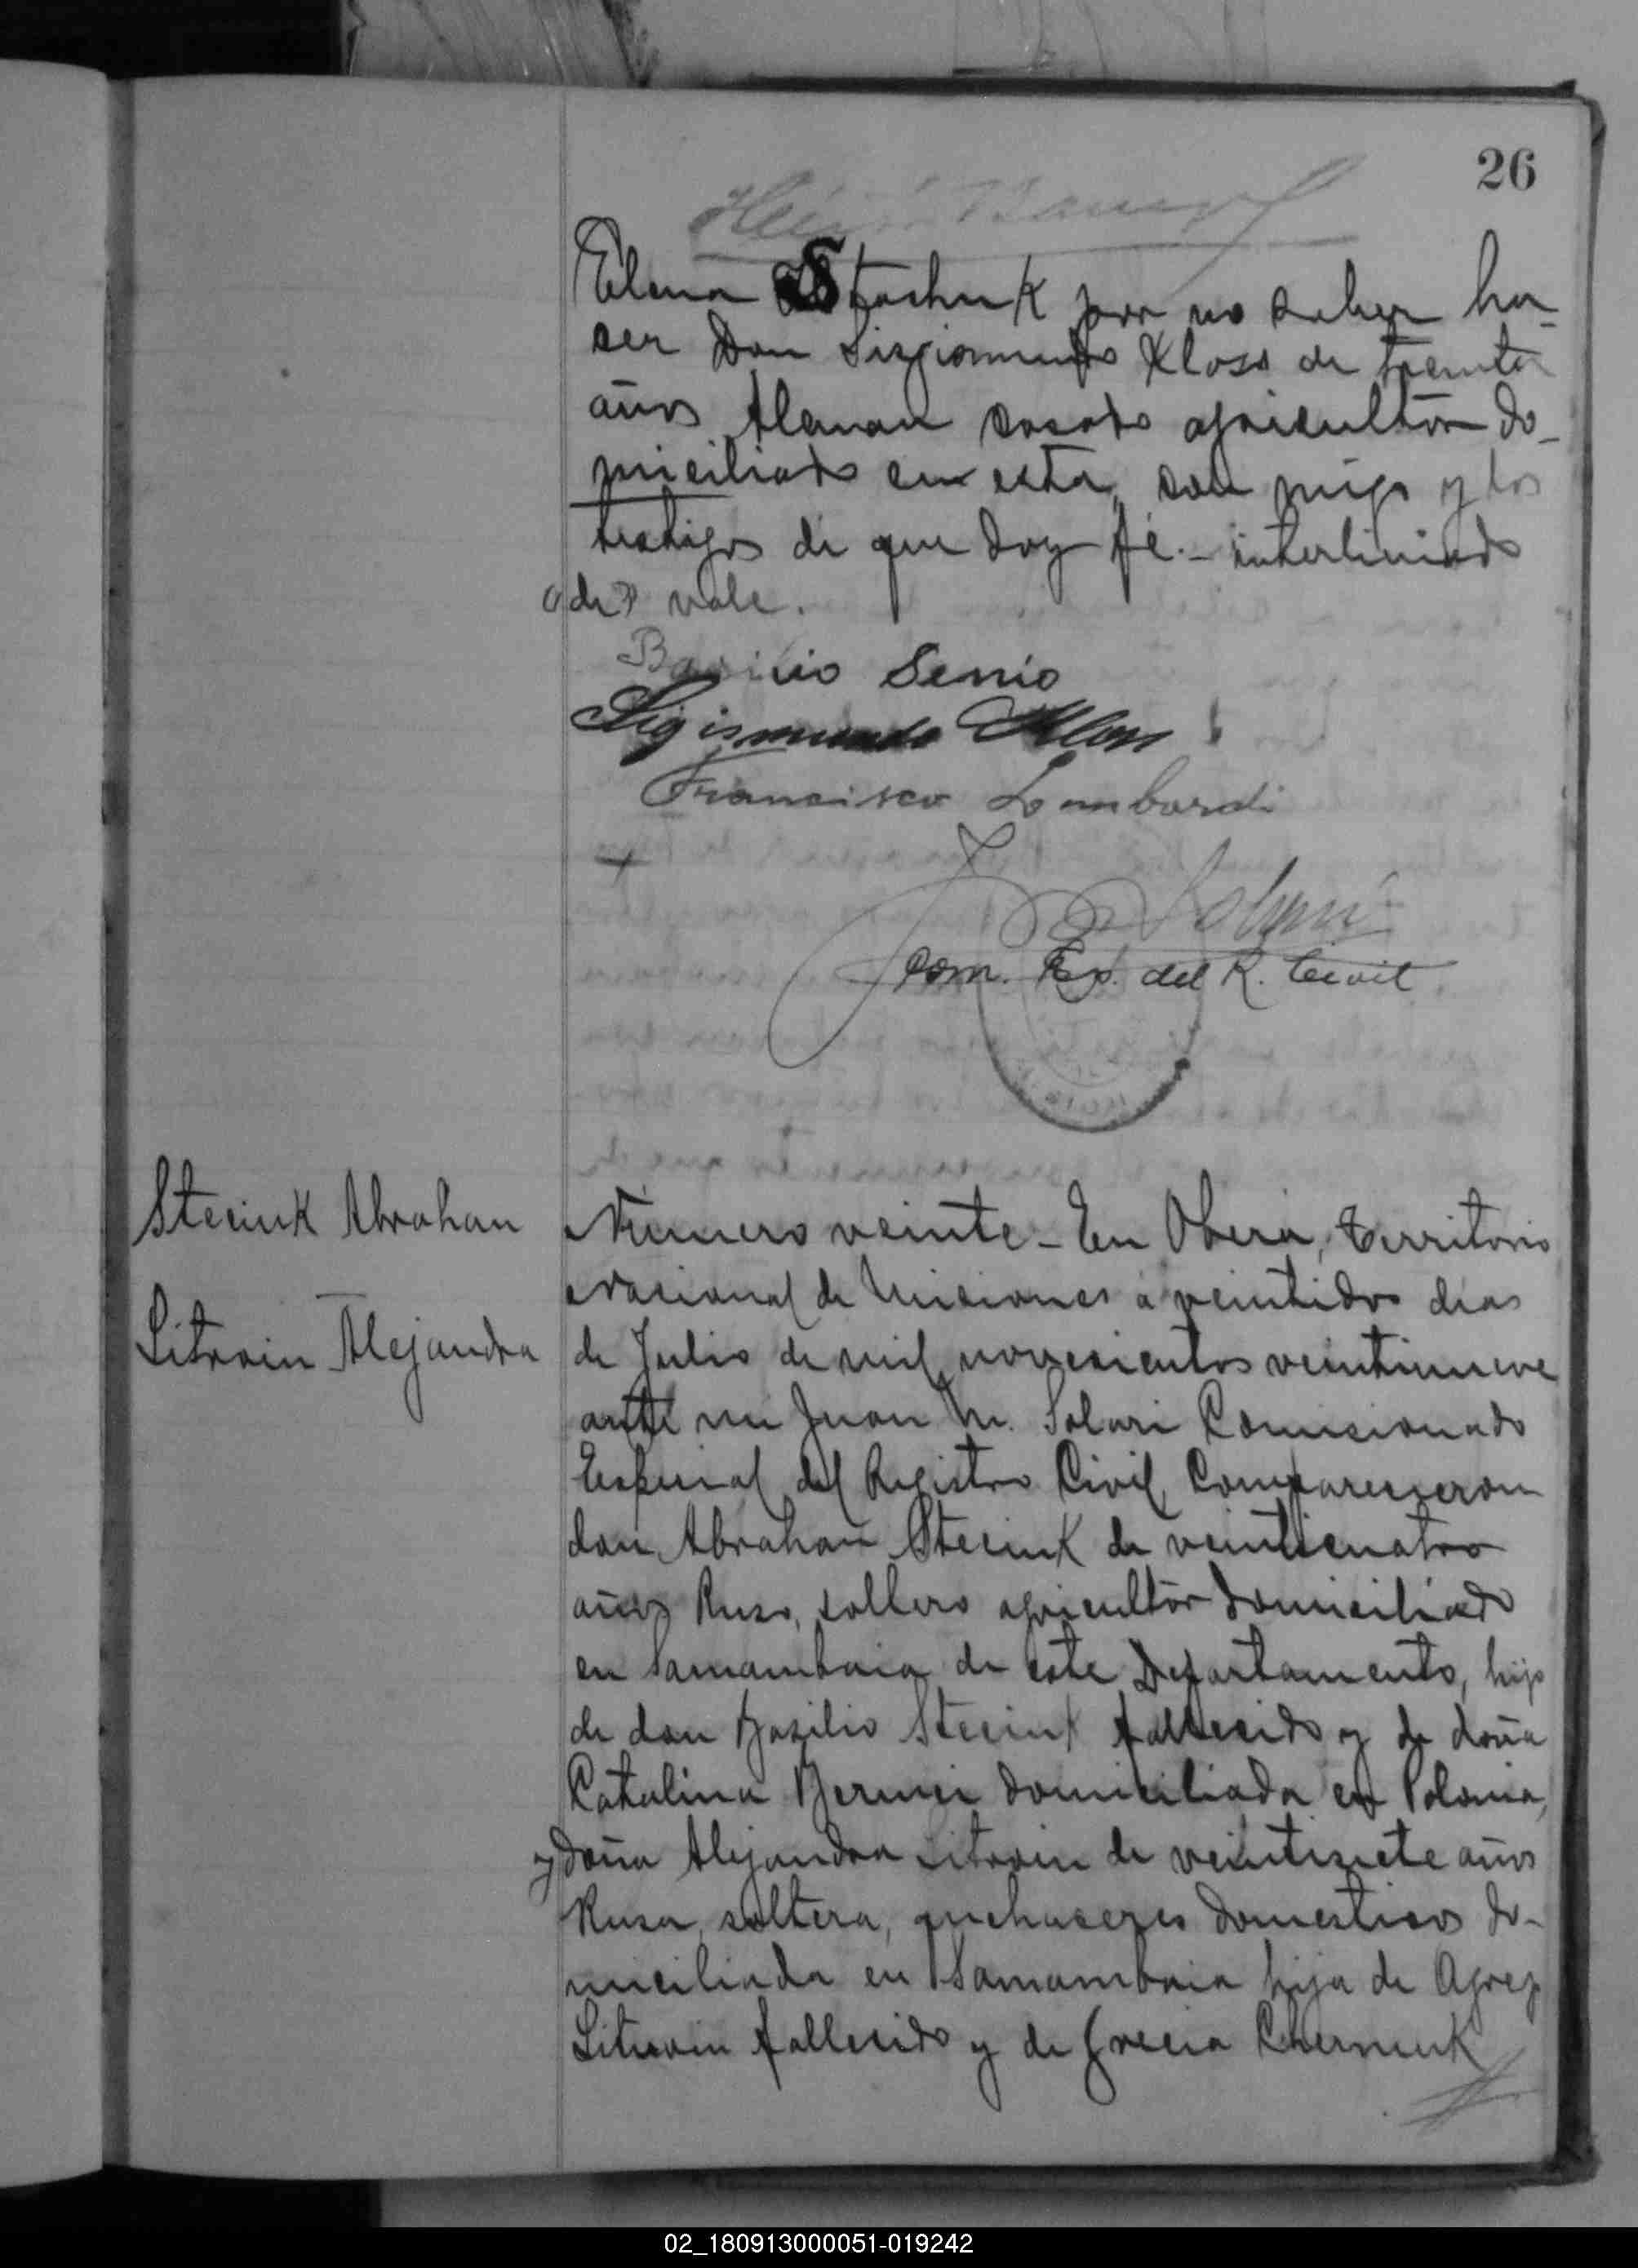 26
Elena Stachuk por no saber ha-
ser Don Sisgismundo Kloss de treinta
años Aleman casado agricultor do-
miciliado en esta, con migo y los
testigos de que doy fé.- interliniado
"de" vale.
Basilio Senio
Sigismundo Kloss
Francisco Lombardi
+
Solari
Com. Esp. del R. Civil
Steciuk Abrahan
Litvoin Alejandra
Número veinte - En Oberá, Territorio
Nacional de Misiones á veintidos dias
de Julio de mil novecientos veintinueve
ante mi Juan M. Solari Comisionado
Especial del Registro Civil, Comparecieron
don Abrahan Steciuk de veinticuatro
años Ruso, soltero agricultor domiciliado
en Samambaia de este Departamento, hijo
de don Basilio Steciuk fallecido y de doña
Catalina domiciliada en Polonia,
y doña Alejandra Litvoin de veintisiete años
Rusa, soltera, quehaceres domesticos do-
miciliada en Samambaia hija de
Litvoin fallecido y de Grecia Cherniuk
02_180913000051-019242